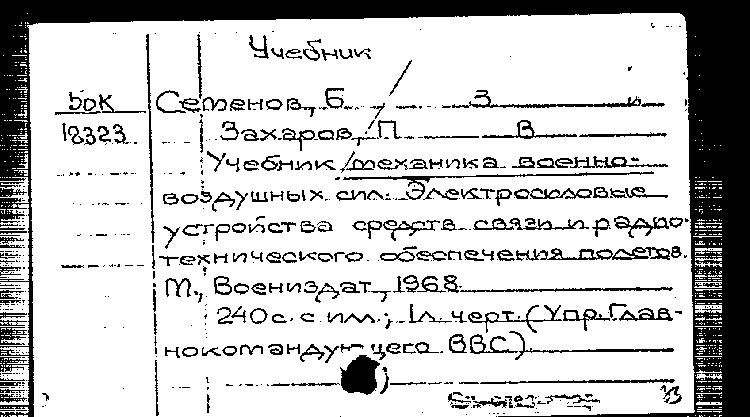 Учебник
бок Семенов, Б З и
18323 Захаров, П В
Учебник механика военно-
воздушных сил. Электросиловые
устройства средств связи и радио-
технического обеспечения полетов.
М., Воениздат, 1968
240с. с илл.; 1л. черт. (Упр. Глав-
нокомандующего ВВС)